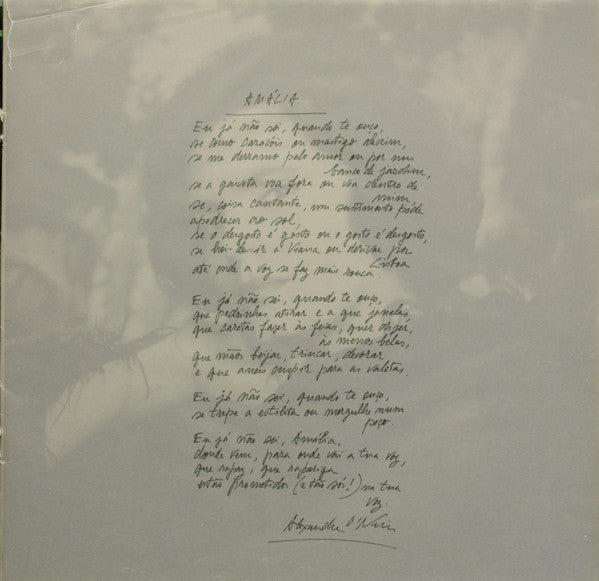 AMÁLIA
Eu já não sei, quando te ouço,
se como caracóis ou mastigo alecrim,
se me derramo pelo amor ou por um
banco de jardim,
se a gaivota voa fora ou voa dentro de
mim,
se, coisa cantante, um sentimento pode
apodrecer ao sol,
se o desgosto é gosto ou o gosto é desgosto,
se hei-de ir a Viana ou derivar por
Lisboa
até onde a voz se faz mais rouca.
Eu já não sei, quando te ouço,
que pedrinhas atirar e a que janelas,
que caretas fazer às feias, quer dizer,
às menos belas,
que mãos beijar, trincar, devorar
e que anéis cuspir para as valetas.
Eu já não sei, quando te ouço,
se trepe a estilita ou mergulhe num
poço.
Eu já não sei, Amália,
donde vem, para onde vai a tua voz,
que rapaz, que rapariga
estão prometidos (e tão sós!) na tua
voz.
Alexandre O'Neill